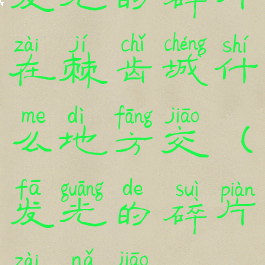 发光的碎片
zài jí chǐ chéng shí
在棘齿城什
me dì fāng jiāo
么地方交（
fā guāng de suì piàn
发光的碎片
zài nǎ jiāo